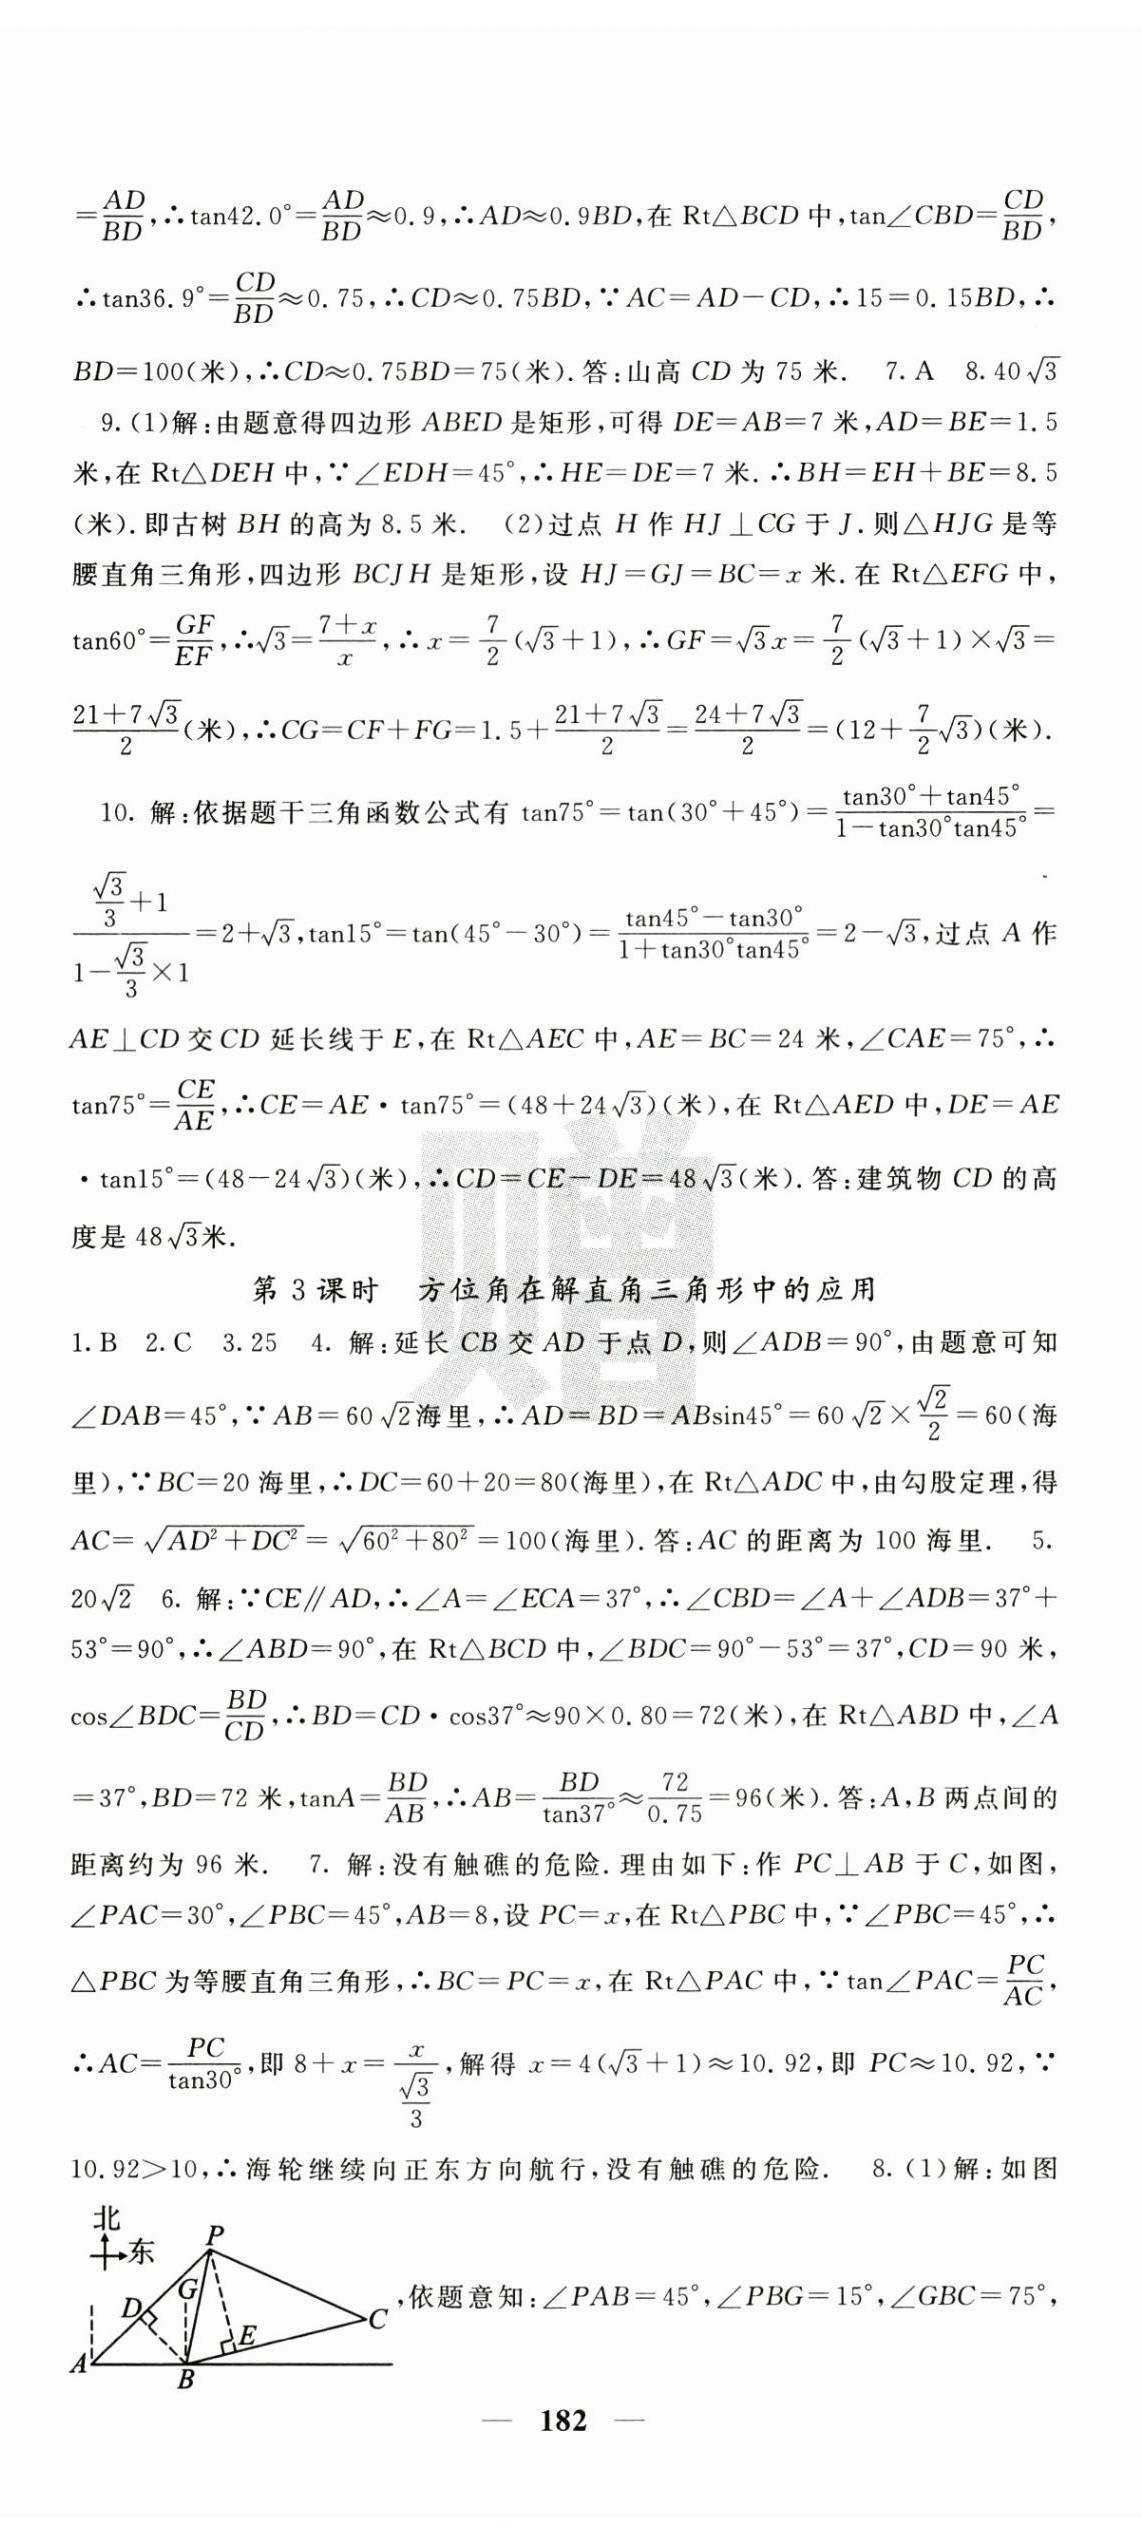 =AD/BD,∴tan42.0°=AD/BD≈0.9,∴AD≈0.9BD,在 Rt△BCD 中,tan∠CBD=CD/BD,
∴tan36.9°=CD/BD≈0.75,∴CD≈0.75BD,∵AC=AD-CD,∴15=0.15BD,∴
BD=100(米),∴CD≈0.75BD=75(米).答:山高 CD 为 75 米. 7.A 8.40√3
9.(1)解:由题意得四边形 ABED 是矩形,可得 DE=AB=7 米,AD=BE=1.5
米,在 Rt△DEH 中,∵∠EDH=45°,∴HE=DE=7 米.∴BH=EH+BE=8.5
(米).即古树 BH 的高为 8.5 米. (2)过点 H 作 HJ⊥CG 于 J.则△HJG 是等
腰直角三角形,四边形 BCJH 是矩形,设 HJ=GJ=BC=x 米.在 Rt△EFG 中,
tan60°=GF/EF,∴√3=(7+x)/x,∴x=7/2(√3+1),∴GF=√3x=7/2(√3+1)×√3=
(21+7√3)/2(米),∴CG=CF+FG=1.5+(21+7√3)/2=(24+7√3)/2=(12+7/2√3)(米).
10. 解:依据题干三角函数公式有 tan75°=tan(30°+45°)=(tan30°+tan45°)/(1-tan30°tan45°)=
(√3/3+1)/(1-√3/3×1)=2+√3,tan15°=tan(45°-30°)=(tan45°-tan30°)/(1+tan30°tan45°)=2-√3,过点 A 作
AE⊥CD 交 CD 延长线于 E,在 Rt△AEC 中,AE=BC=24 米,∠CAE=75°,∴
tan75°=CE/AE,∴CE=AE·tan75°=(48+24√3)(米),在 Rt△AED 中,DE=AE
·tan15°=(48-24√3)(米),∴CD=CE-DE=48√3(米).答:建筑物 CD 的高
度是 48√3米.
赠
第 3 课时 方位角在解直角三角形中的应用
1.B 2.C 3.25 4. 解:延长 CB 交 AD 于点 D,则∠ADB=90°,由题意可知
∠DAB=45°,∵AB=60√2海里,∴AD=BD=ABsin45°=60√2×√2/2=60(海
里),∵BC=20 海里,∴DC=60+20=80(海里),在 Rt△ADC 中,由勾股定理,得
AC=√(AD²+DC²)=√(60²+80²)=100(海里).答:AC 的距离为 100 海里. 5.
20√2 6. 解:∵CE∥AD,∴∠A=∠ECA=37°,∴∠CBD=∠A+∠ADB=37°+
53°=90°,∴∠ABD=90°,在 Rt△BCD 中,∠BDC=90°-53°=37°,CD=90 米,
cos∠BDC=BD/CD,∴BD=CD·cos37°≈90×0.80=72(米),在 Rt△ABD 中,∠A
=37°,BD=72 米,tanA=BD/AB,∴AB=BD/tan37°≈72/0.75=96(米).答:A,B 两点间的
距离约为 96 米. 7. 解:没有触礁的危险.理由如下:作 PC⊥AB 于 C,如图,
∠PAC=30°,∠PBC=45°,AB=8,设 PC=x,在 Rt△PBC 中,∵∠PBC=45°,∴
△PBC 为等腰直角三角形,∴BC=PC=x,在 Rt△PAC 中,∵tan∠PAC=PC/AC,
∴AC=PC/tan30°,即 8+x=x/(√3/3),解得 x=4(√3+1)≈10.92,即 PC≈10.92,∵
10.92>10,∴海轮继续向正东方向航行,没有触礁的危险. 8.(1)解:如图
北
东
P
D
G
E
C
A
B
,依题意知:∠PAB=45°,∠PBG=15°,∠GBC=75°,
— 182 —